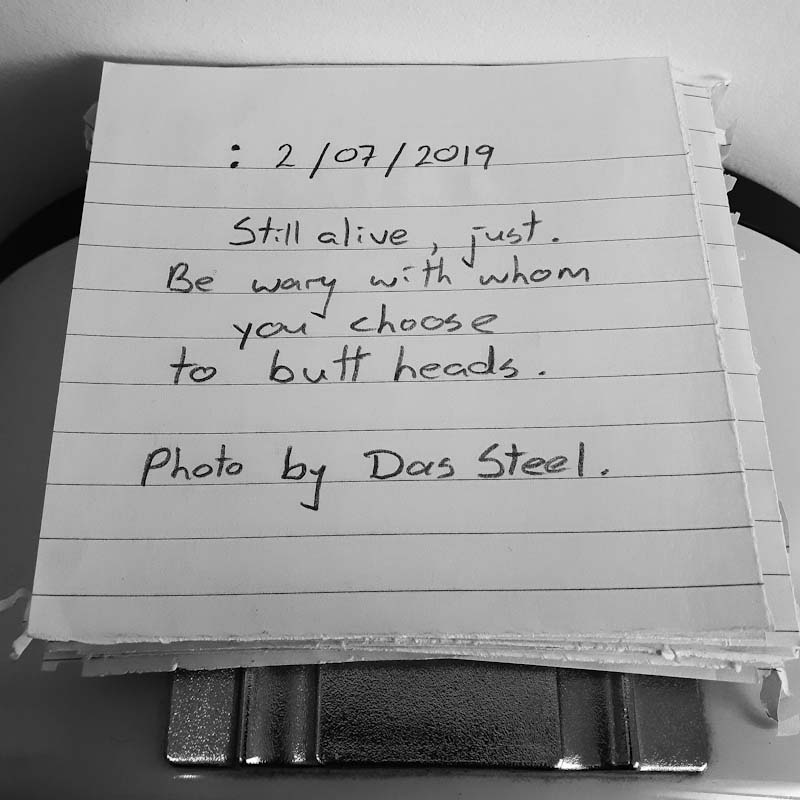 : 2/07/2019
Still alive, just.
Be wary with whom
you choose
to butt heads.
Photo by Das Steel.